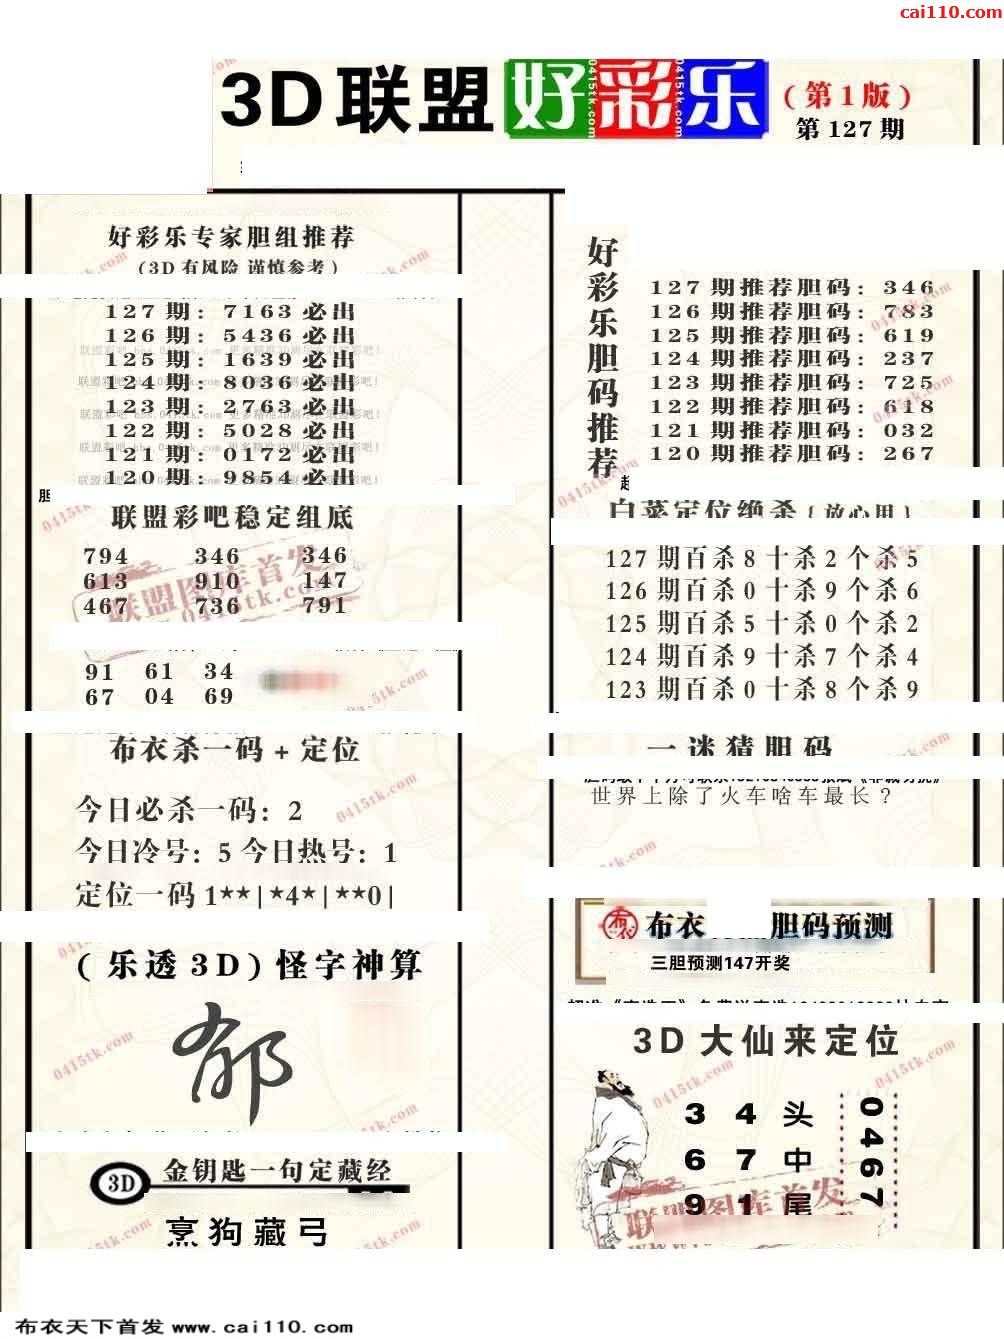 cai110.com
3D联盟好彩乐
(第1版)
第127期
好彩乐专家胆组推荐
(3D有风险 谨慎参考)
127期: 7163必出
126期: 5436必出
125期: 1639必出
124期: 8036必出
123期: 2763必出
122期: 5028必出
121期: 0172必出
120期: 9854必出
胆
联盟彩吧稳定组底
794 346 346
613 910 147
467 736 791
91 61 34
67 04 69
布衣杀一码+定位
今日必杀一码: 2
今日冷号: 5 今日热号: 1
定位一码 1**|*4*|**0|
(乐透3D)怪字神算
郁
3D 金钥匙一句定藏经
烹狗藏弓
好彩乐胆码推荐
127期推荐胆码: 346
126期推荐胆码: 783
125期推荐胆码: 619
124期推荐胆码: 237
123期推荐胆码: 725
122期推荐胆码: 618
121期推荐胆码: 032
120期推荐胆码: 267
白菜定位绝杀{放心用}
127期百杀8十杀2个杀5
126期百杀0十杀9个杀6
125期百杀5十杀0个杀2
124期百杀9十杀7个杀4
123期百杀0十杀8个杀9
一迷猜胆码
世界上除了火车啥车最长?
布衣 胆码预测
三胆预测147开奖
3D大仙来定位
3 4 头
6 7 中
9 1 尾
0467
联盟图库首发
0415tk.com
布衣天下首发 www.cai110.com